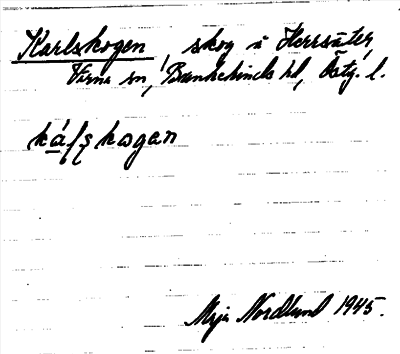 Karlskogen, skog i Herrsäter,
Värna sn, Bankekinds hd, Östg. l.
káḷṣkogan
Maja Nordlund 1945.